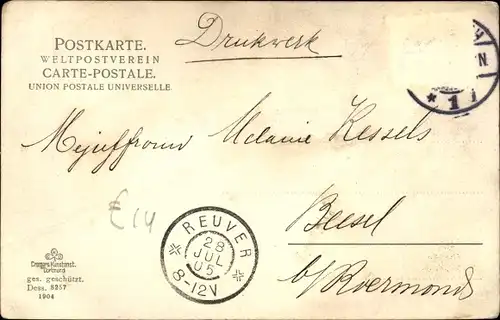 POSTKARTE.
WELTPOSTVEREIN
CARTE-POSTALE.
UNION POSTALE UNIVERSELLE.
Drukwerk
N
* 1
Mejuffrouw Melanie Kessels
Beesel
b/ Roermond
€14
REUVER
28
JUL
05
8-12V
Crüger's Kunstanst.
Dortmund
ges. geschützt.
Dess. 5257
1904